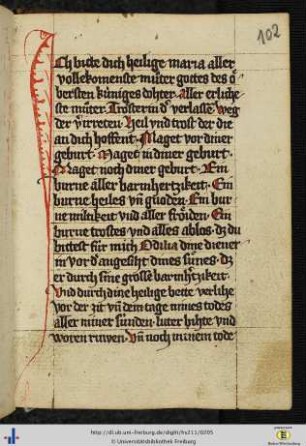 102
Ich bitte dich heilige maria aller
vollekomenste můter gottes des ŏ
bersten kúniges dohter. Aller erliche
ste můter. Trosterin dˢ verlassē. weg
der v̓irreten. Heil vnd trost der die
an dich hoffent. Maget vor diner
geburt. Maget in diner geburt.
Maget noch diner geburt. Ein
burne aller barmhertzikeit. Ein
burne heiles vn̄ gnoden. Ein bur
ne miltikeit vnd aller frŏiden. Ein
burne trostes vnd alles ablos. dz du
bittest für mich Odilia dine diener
in vor dˢ angesiht dines sunes. dz
er durch sine grosse barmh̓tzikeit.
Vnd durch dine heilige bette verlihe
vor der zit vn̄ dem tage mines todes
aller miner sunden. luter bihte vnd
woren ruwen. Vn̄ noch minem tode
http://dl.ub.uni-freiburg.de/diglit/hs211/0205
© Universitätsbibliothek Freiburg